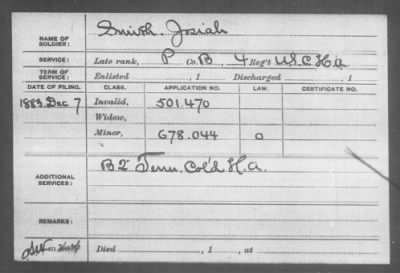 NAME OF SOLDIER: Smith, Josiah
SERVICE: Late rank, P Co. B, 4 Reg't U.S.C.H.A.
TERM OF SERVICE: Enlisted , 1 Discharged , 1
DATE OF FILING. CLASS. APPLICATION NO. LAW. CERTIFICATE NO.
1883. Dec 7 Invalid, 501.470
Widow,
Minor, 678.044 o
ADDITIONAL SERVICES: B 2" Tenn. Col'd H.A.
REMARKS:
Died , 1 , at